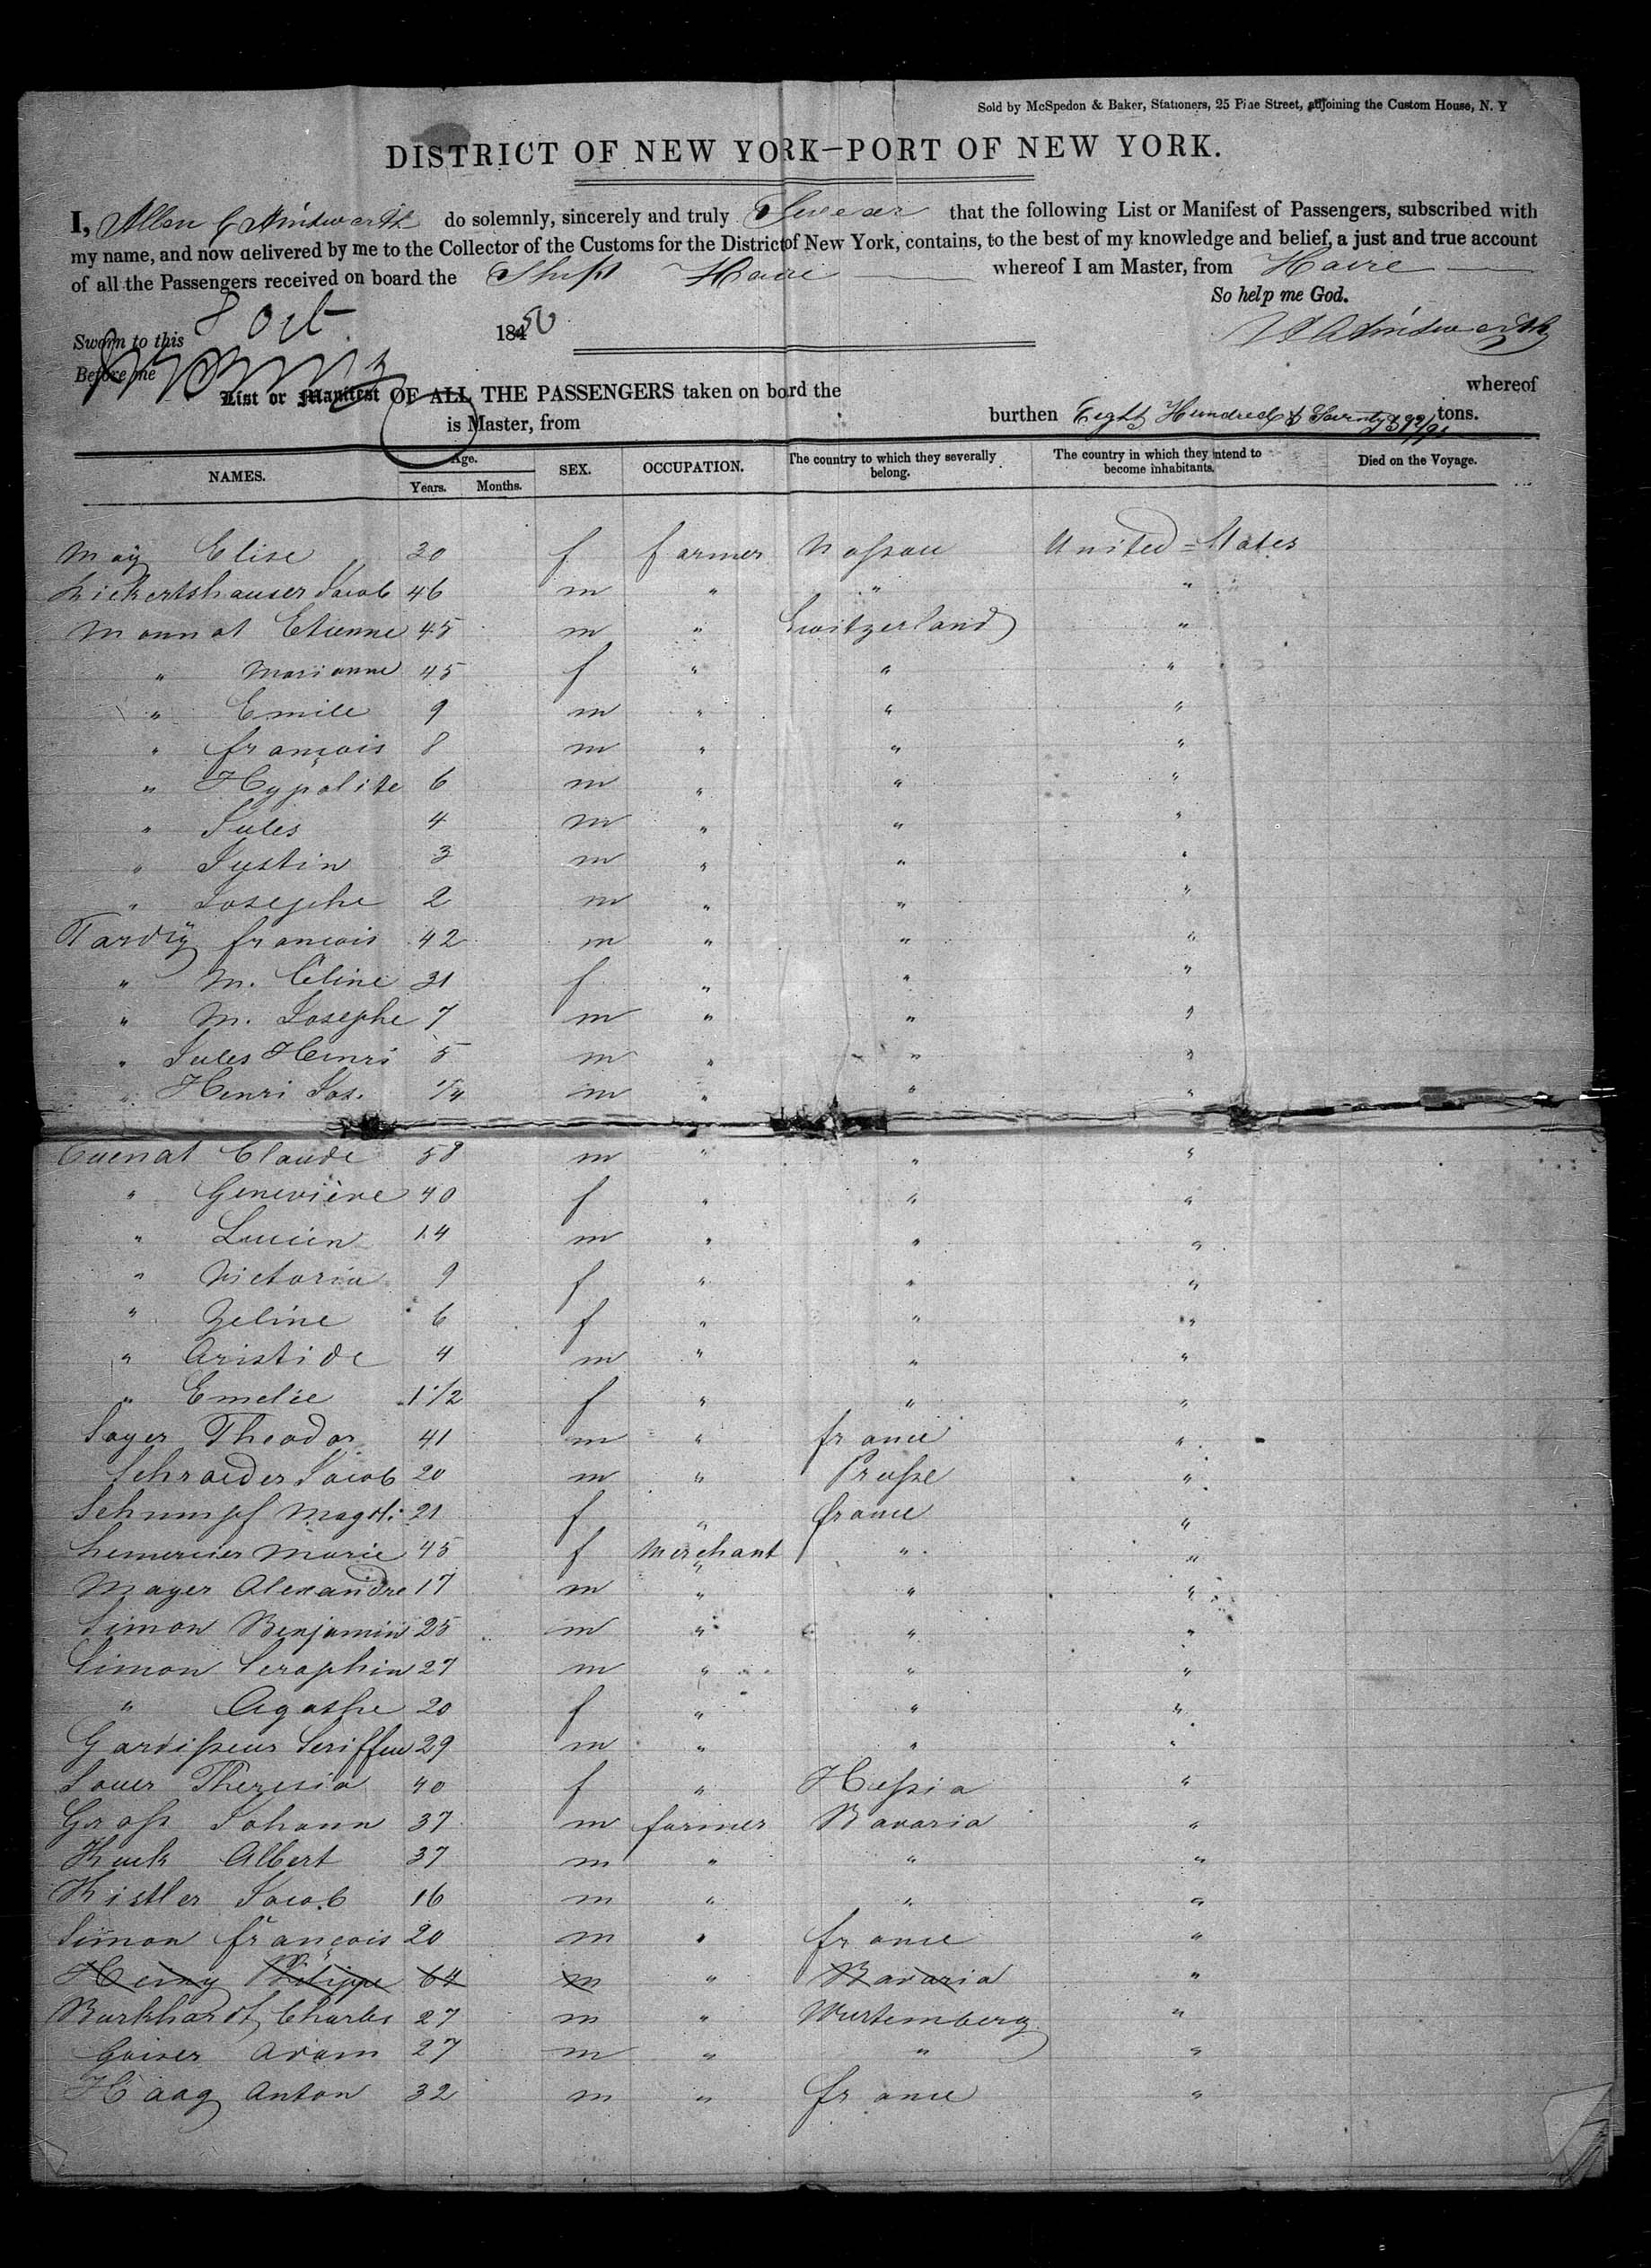 Sold by McSpedon & Baker, Stationers, 25 Pine Street, adjoining the Custom House, N. Y
DISTRICT OF NEW YORK—PORT OF NEW YORK.
I, Allen C Ainsworth do solemnly, sincerely and truly Swear that the following List or Manifest of Passengers, subscribed with
my name, and now delivered by me to the Collector of the Customs for the District of New York, contains, to the best of my knowledge and belief, a just and true account
of all the Passengers received on board the Ship Havre whereof I am Master, from Havre
So help me God.
Sworn to this 8 Oct 1850
A C Ainsworth
Before me
List or Manifest OF ALL THE PASSENGERS taken on bord the whereof
is Master, from burthen Eight Hundred & Seventy tons.
NAMES. Age. SEX. OCCUPATION. The country to which they severally belong. The country in which they intend to become inhabitants. Died on the Voyage.
Years. Months.
Maÿ Elise 30 f farmer Naſsau United=States
Rickertshauser Jacob 46 m " " "
Monnat Etienne 45 m " Switzerland "
" Marianne 45 f " " "
" Emile 9 m " " "
" françois 8 m " " "
" Hypolite 6 m " " "
" Jules 4 m " " "
" Justin 3 m " " "
" Josephe 2 m " " "
Tardÿ francois 42 m " " "
" M. Céline 31 f " " "
" M. Josephe 7 m " " "
" Jules Henri 5 m " " "
" Henri Jos. 1/4 m " " "
Cuenat Claude 58 m " " "
" Geneviève 40 f " " "
" Lucien 14 m " " "
" Victoria 9 f " " "
" Zeline 6 f " " "
" Aristide 4 m " " "
" Emelie 1 1/2 f " " "
Sayer Theodor 41 m " france "
Schraeder Jacob 20 m " Pruſse "
Schumpf Magd: 21 f " france "
Lemercier Marie 45 f Merchant " "
Mayer Alexandre 17 m " " "
Simon Benjamin 25 m " " "
Simon Seraphin 27 m " " "
" Agathe 20 f " " "
Gardiſseur Seriffen 29 m " " "
Sauer Theresia 40 f " Heſsia "
Groſs Johann 37 m farmer Bavaria "
Kuck Albert 37 m " " "
Kistler Jacob 16 m " " "
Simon françois 20 m " france "
Heiny Philippe 64 m " Bavaria "
Burkhardt Charles 27 m " Wurtemberg "
Gaiser Adam 27 m " " "
Haag Anton 32 m " france "